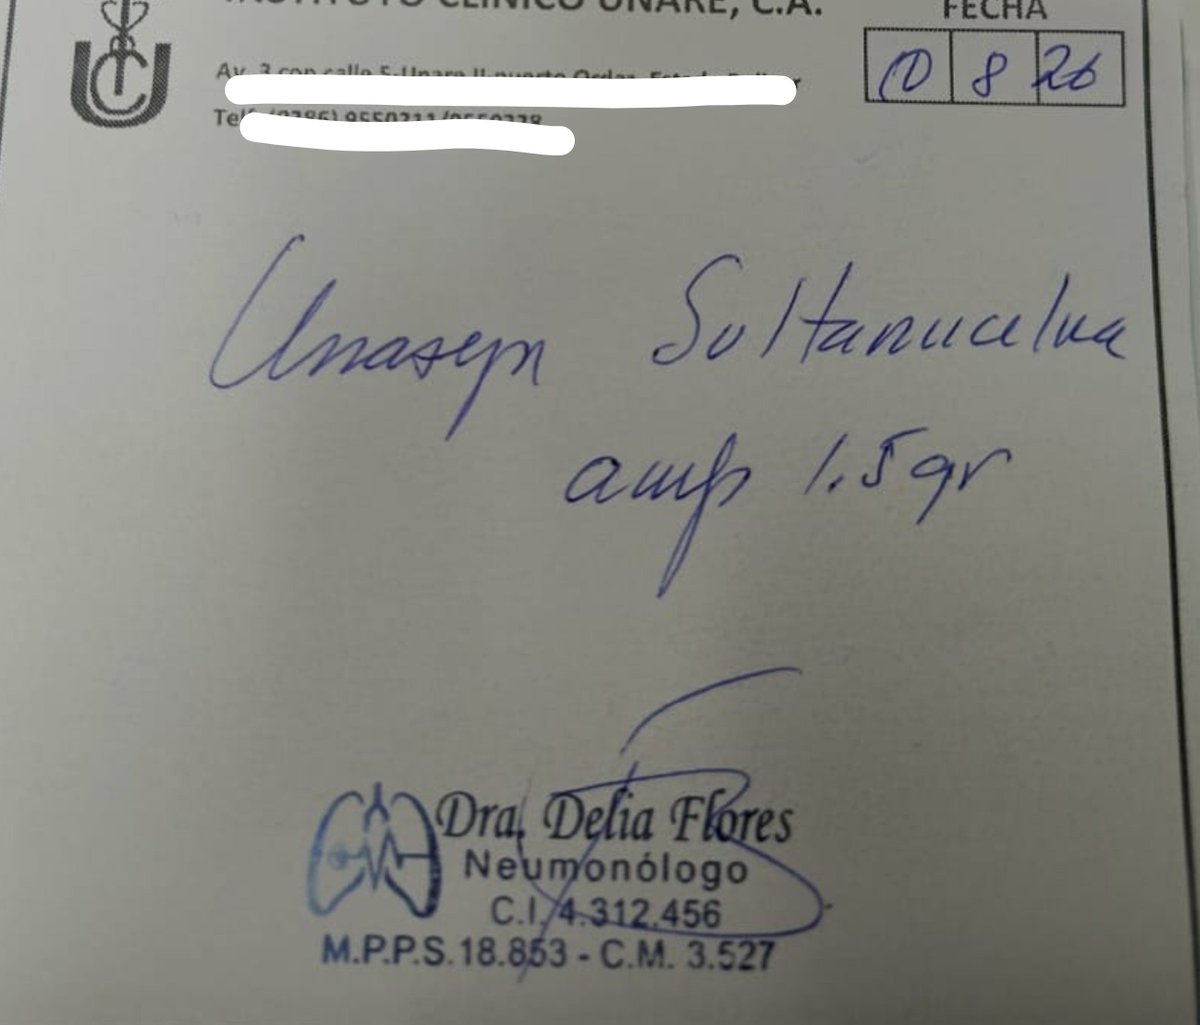 INSTITUTO CLINICO UNARE, C.A.
FECHA
10 8 26
Av. 3 con calle 5-Unare II
Telf.
Unasyn Sultamicilina
amp 1.5 gr
Dra. Delia Flores
Neumonólogo
C.I. 4.312.456
M.P.P.S. 18.853 - C.M. 3.527